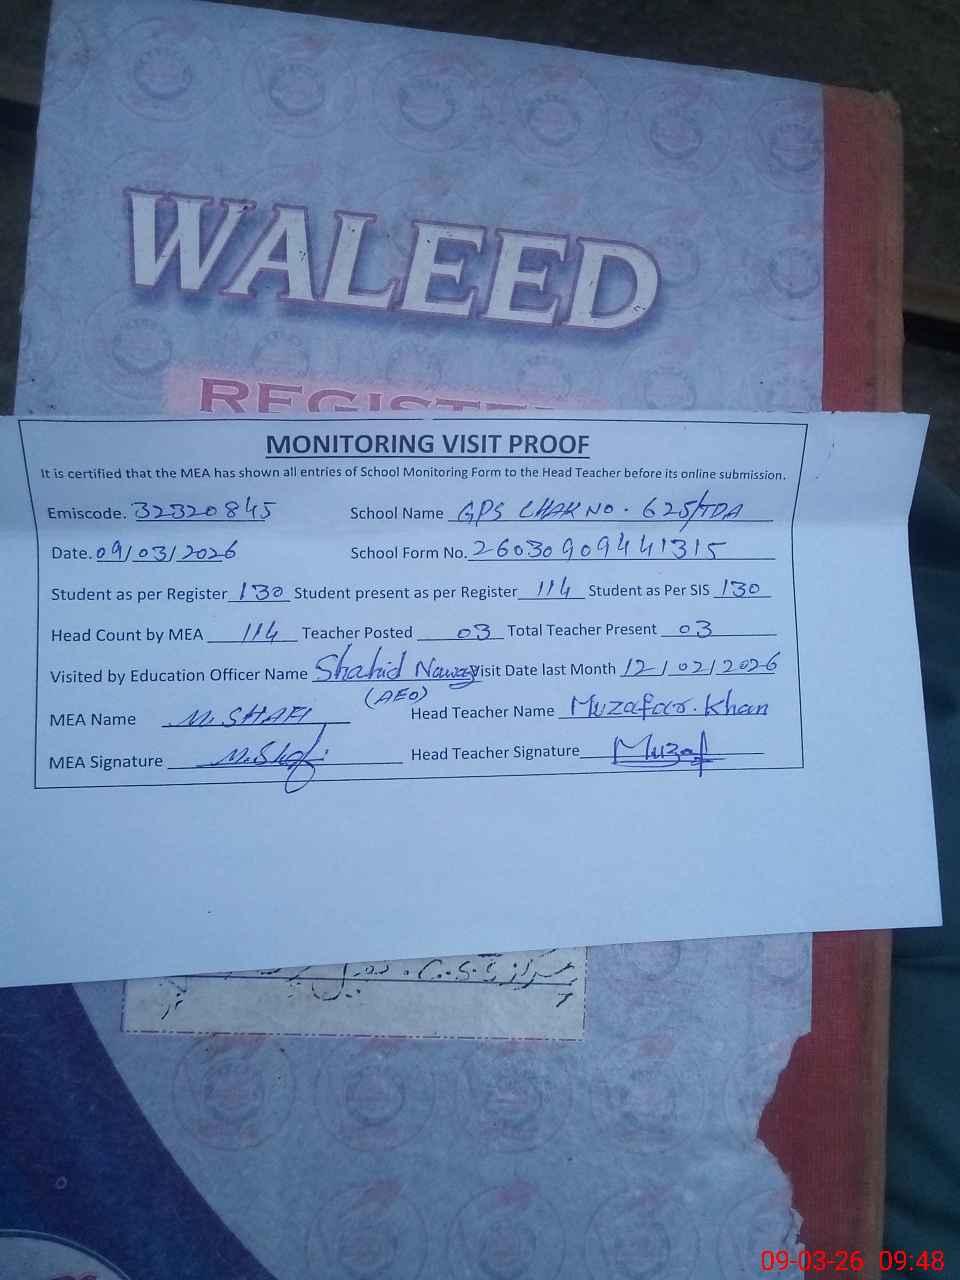 WALEED
REGISTER
MONITORING VISIT PROOF
It is certified that the MEA has shown all entries of School Monitoring Form to the Head Teacher before its online submission.
Emiscode. 32320845 School Name GPS CHAK NO. 625/TDA
Date. 09/03/2026 School Form No. 26030909441315
Student as per Register 130 Student present as per Register 114 Student as Per SIS 130
Head Count by MEA 114 Teacher Posted 03 Total Teacher Present 03
Visited by Education Officer Name Shahid Nawaz Visit Date last Month 12/02/2026
(AEO)
MEA Name M. SHAFI Head Teacher Name Muzafar. Khan
MEA Signature M. Shafi Head Teacher Signature Muzaf
09-03-26 09:48